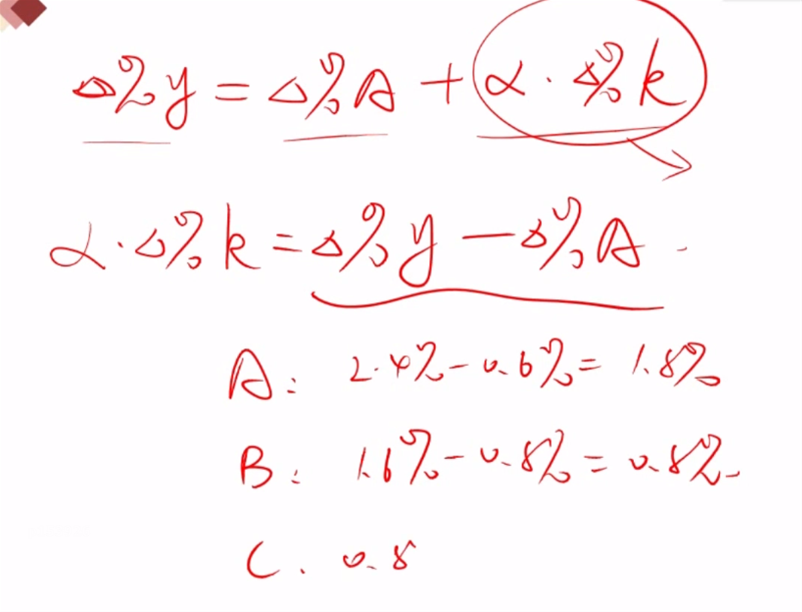 Δ%y = Δ%A + α · Δ%k
α · Δ%k = Δ%y − Δ%A.
A: 2.4% − 0.6% = 1.8%
B: 1.6% − 0.8% = 0.8%.
C. 0.8